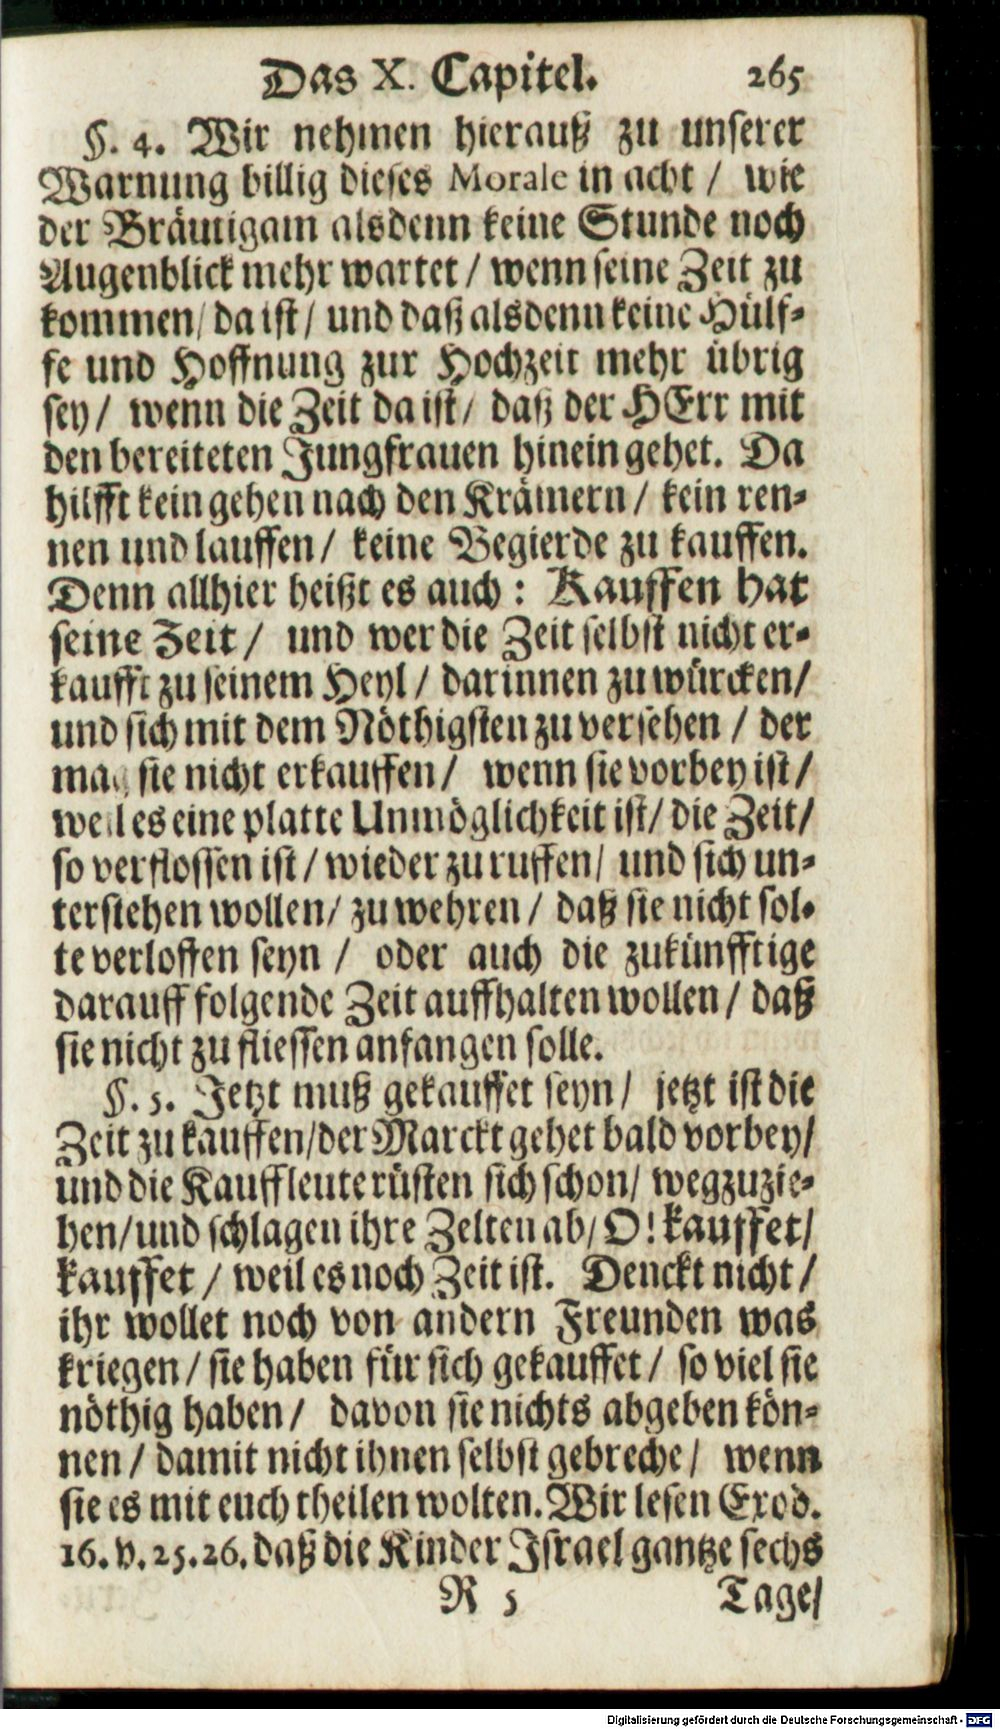 Das X. Capitel. 265
§. 4. Wir nehmen hierauß zu unserer
Warnung billig dieses Morale in acht / wie
der Bräutigam alsdenn keine Stunde noch
Augenblick mehr wartet / wenn seine Zeit zu
kommen / da ist / und daß alsdenn keine Hülf-
fe und Hoffnung zur Hochzeit mehr übrig
sey / wenn die Zeit da ist / daß der HErr mit
den bereiteten Jungfrauen hinein gehet. Da
hilfft kein gehen nach den Krämern / kein ren-
nen und lauffen / keine Begierde zu kauffen.
Denn allhier heißt es auch : Kauffen hat
seine Zeit / und wer die Zeit selbst nicht er-
kaufft zu seinem Heyl / darinnen zu würcken /
und sich mit dem Nöthigsten zu versehen / der
mag sie nicht erkauffen / wenn sie vorbey ist /
weil es eine platte Unmöglichkeit ist / die Zeit /
so verflossen ist / wieder zu ruffen / und sich un-
terstehen wollen / zu wehren / daß sie nicht sol-
te verloffen seyn / oder auch die zukünfftige
darauff folgende Zeit auffhalten wollen / daß
sie nicht zu fliessen anfangen solle.
§. 5. Jetzt muß gekauffet seyn / jetzt ist die
Zeit zu kauffen / der Marckt gehet bald vorbey /
und die Kauffleute rüsten sich schon / wegzuzie-
hen / und schlagen ihre Zelten ab / O! kauffet /
kauffet / weil es noch Zeit ist. Denckt nicht /
ihr wollet noch von andern Freunden was
kriegen / sie haben für sich gekauffet / so viel sie
nöthig haben / davon sie nichts abgeben kön-
nen / damit nicht ihnen selbst gebreche / wenn
sie es mit euch theilen wolten. Wir lesen Exod.
16. v. 25. 26. daß die Kinder Israel gantze sechs
R 5 Tage /
Digitalisierung gefördert durch die Deutsche Forschungsgemeinschaft - DFG